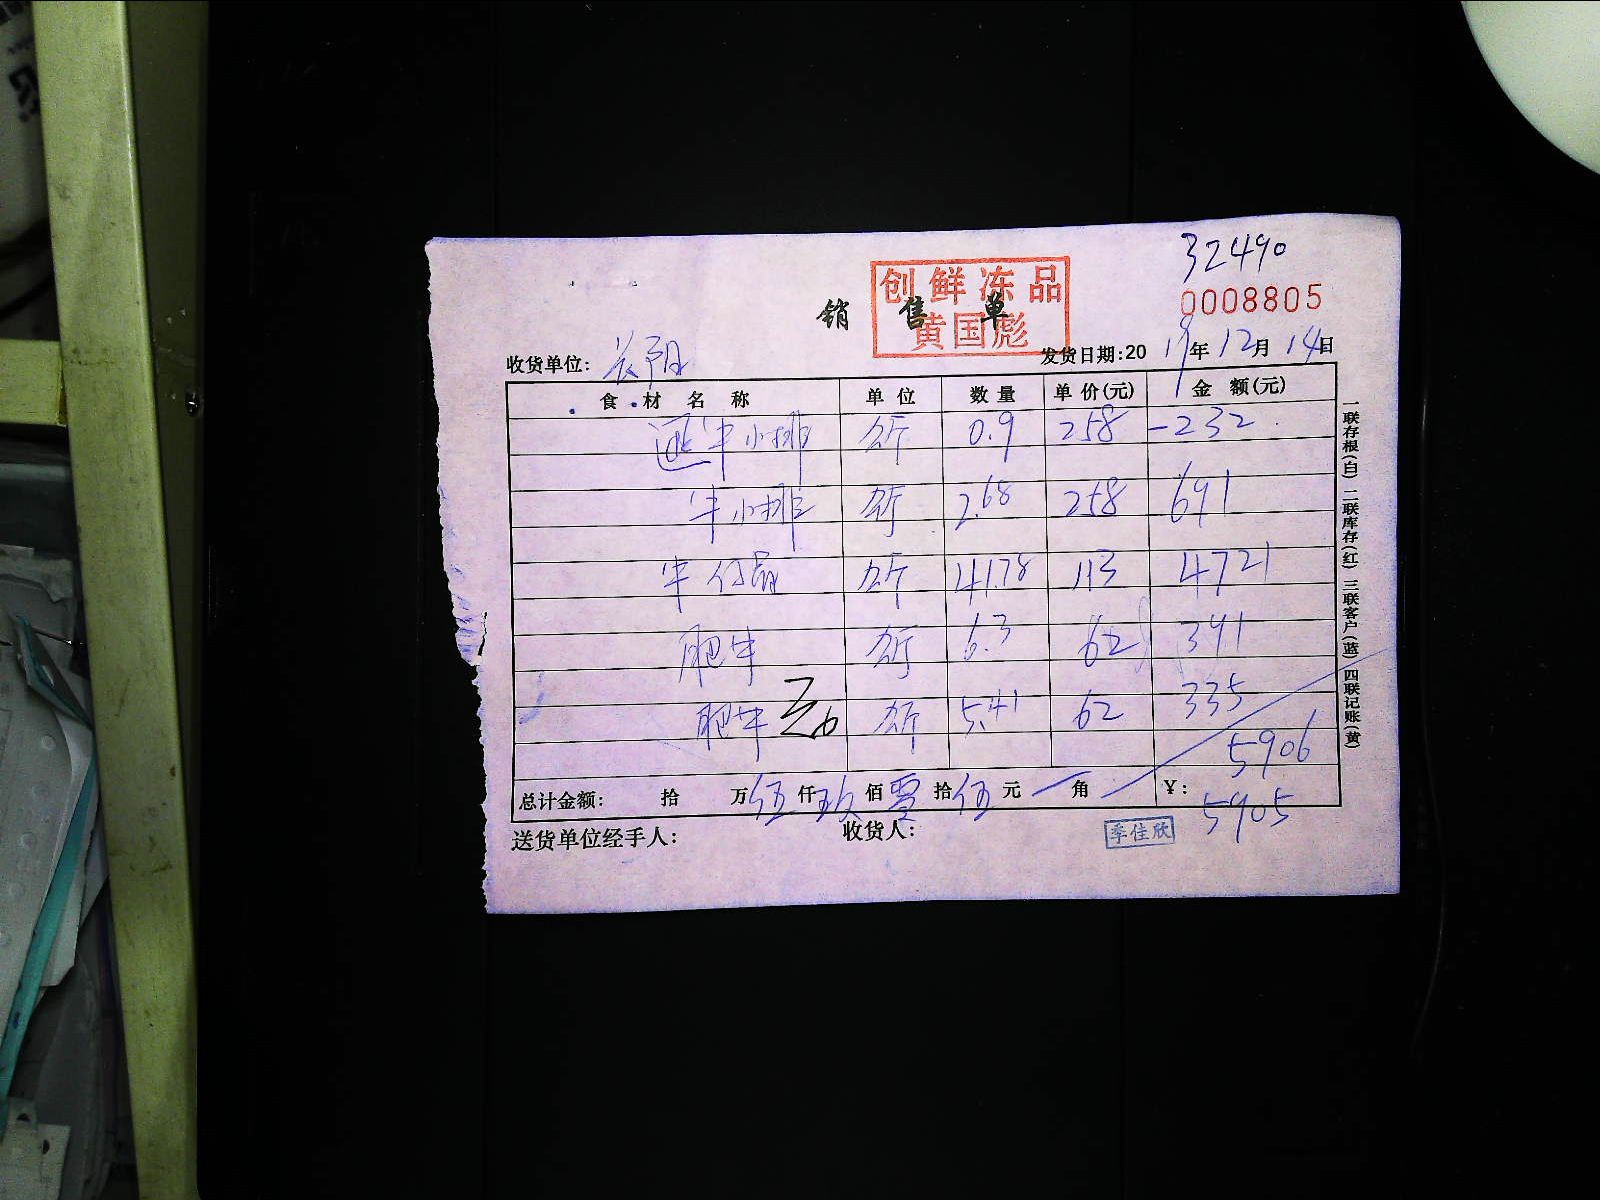 32490
创鲜冻品
销售单
黄国彪
0008805
收货单位: 长阳 发货日期:2019年12月14日
食材名称 单位 数量 单价(元) 金额(元)
退牛小排 公斤 0.9 258 -232
牛小排 公斤 2.68 258 691
牛仔骨 公斤 41.78 113 4721
肥牛 公斤 6.3 62 391
肥牛 公斤 5.41 62 335
5906
总计金额: 拾 万伍仟玖佰零拾伍元 角 ¥: 5905
送货单位经手人: 收货人: 季佳欣
一联存根(白) 二联库存(红) 三联客户(蓝) 四联记账(黄)